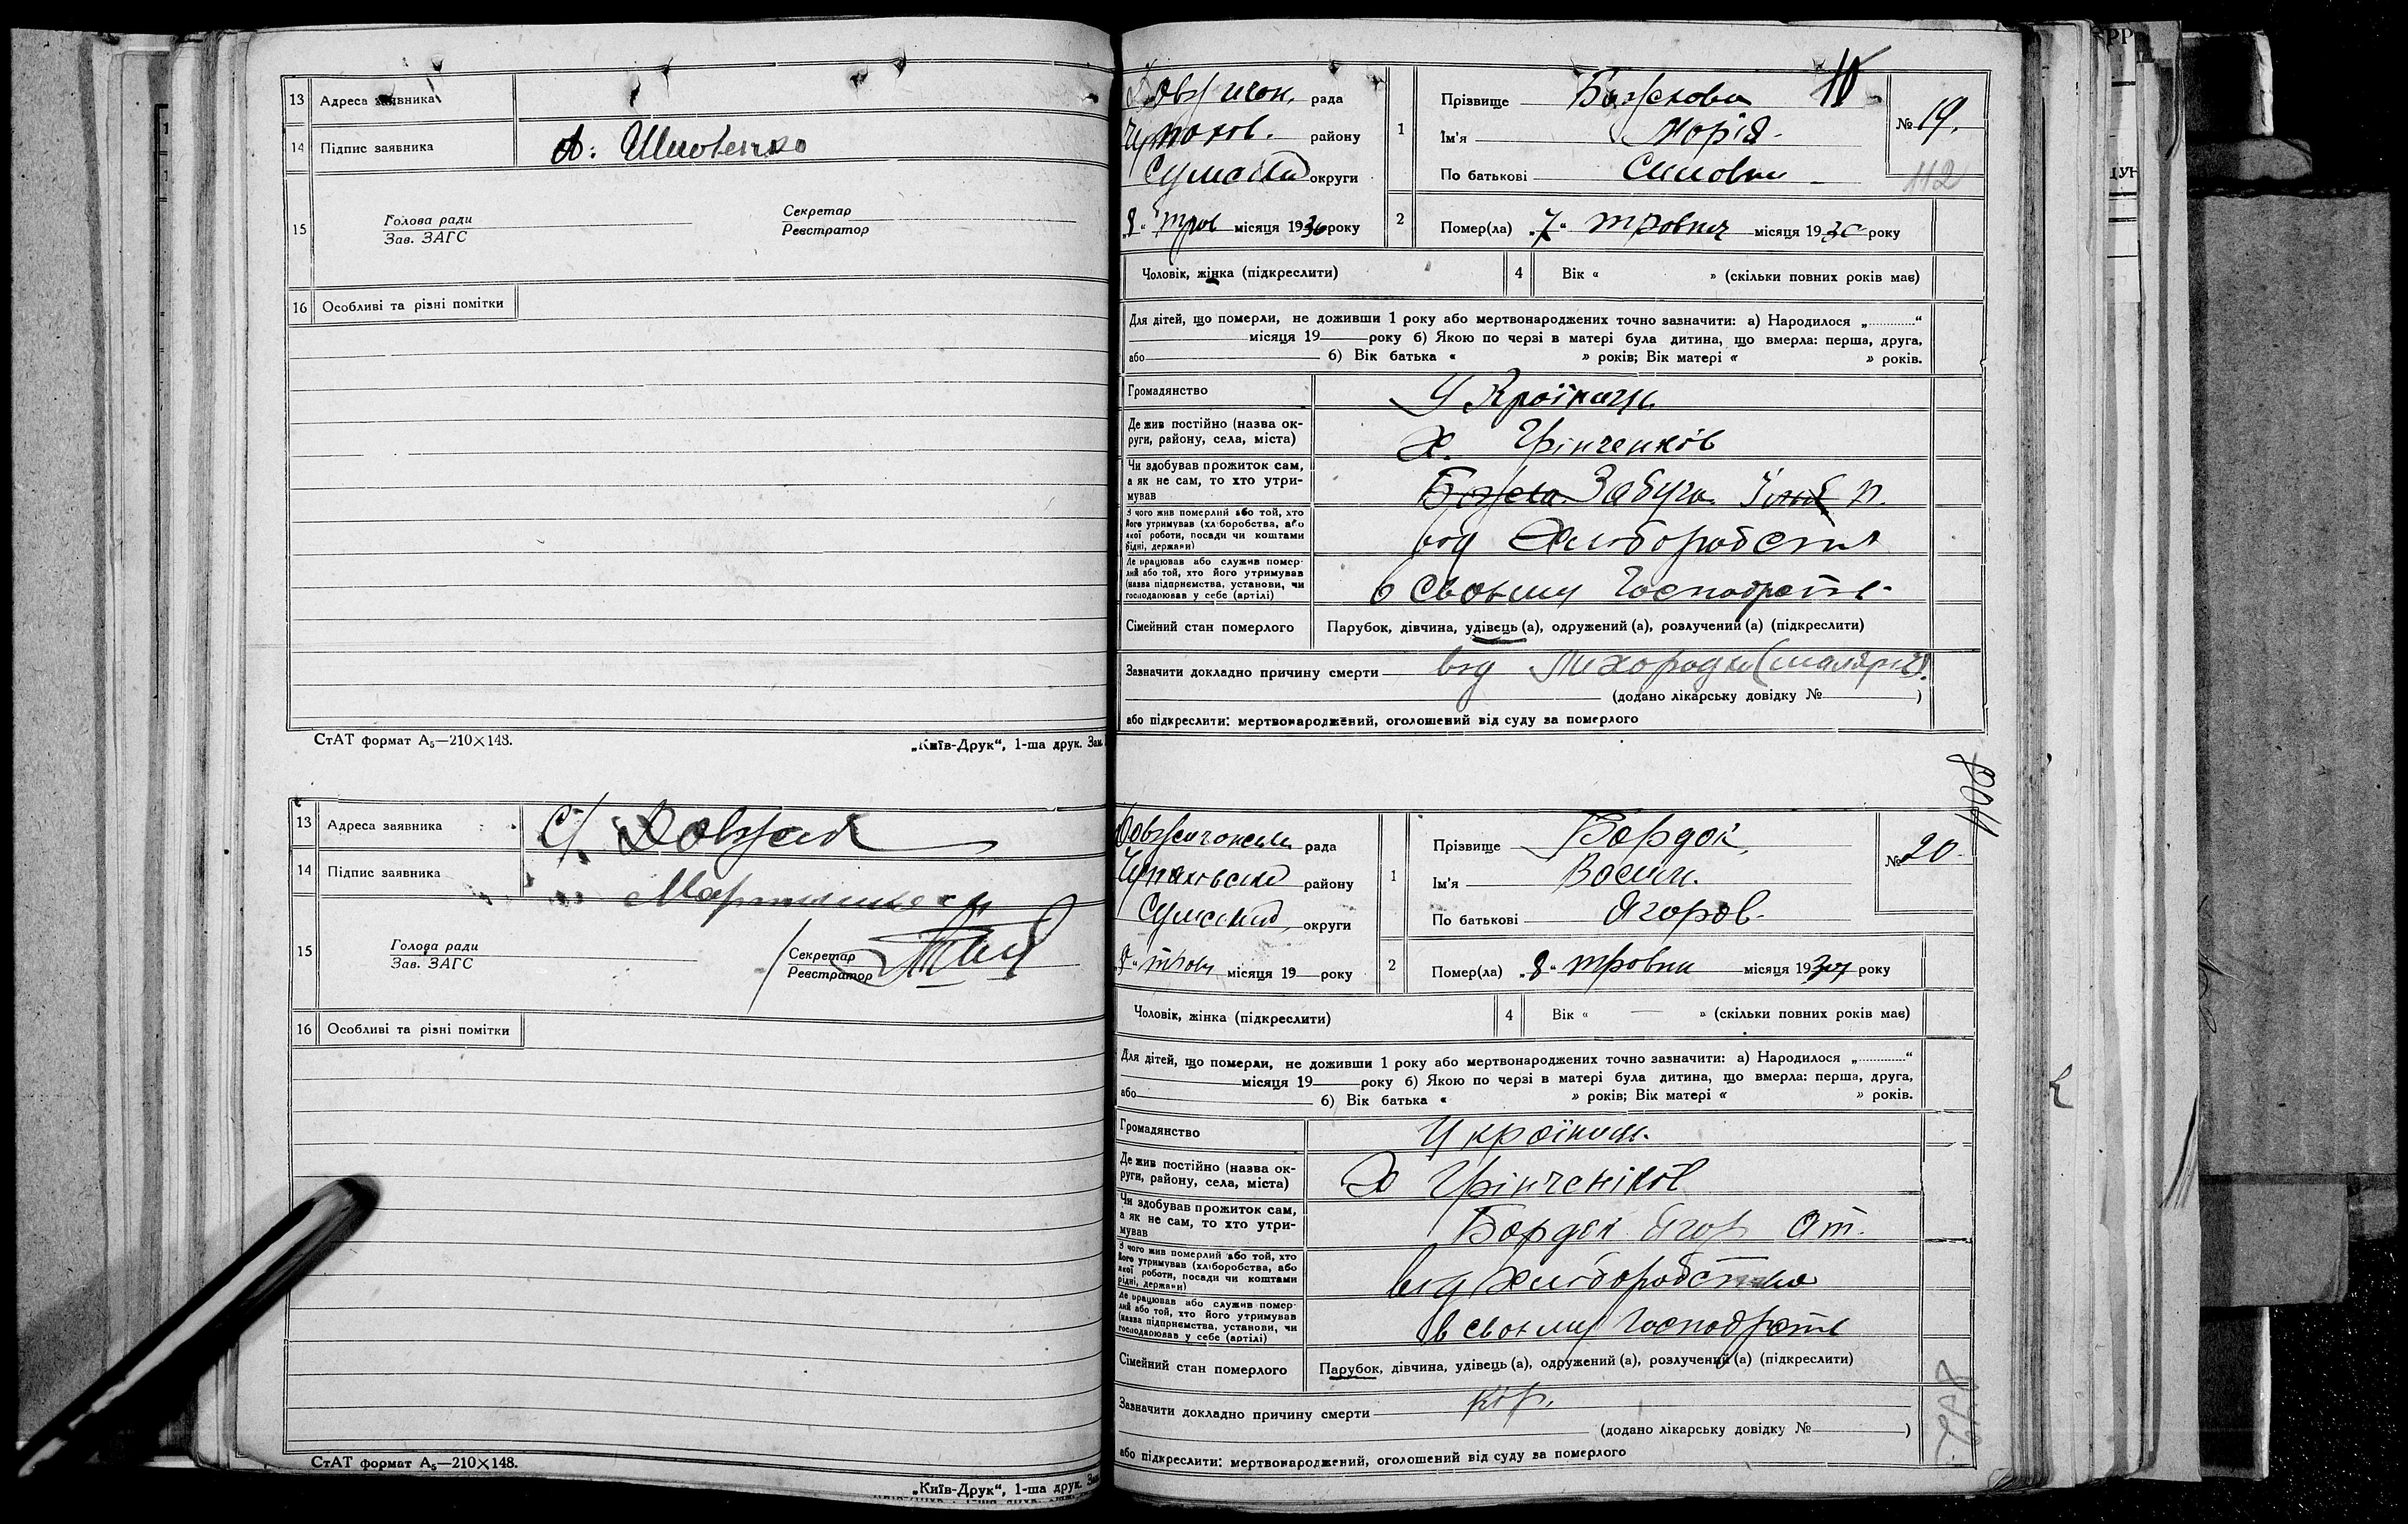 13 Адреса заявника
14 Підпис заявника
15 Голова ради
Зав. ЗАГС
Секретар
Реєстратор
16 Особливі та різні помітки
СтАТ формат А₅—210×148.
„Київ-Друк“, 1-ша друк. Зам.
13 Адреса заявника С/. Довжик
14 Підпис заявника
15 Голова ради
Зав. ЗАГС
Секретар
Реєстратор
16 Особливі та різні помітки
СтАТ формат А₅—210×148.
„Київ-Друк“, 1-ша друк. Зам.
рада
району
округи
„8“ трав місяця 1930 року
1 Прізвище
Ім'я Марія
По батькові
№ 19.
112
2 Помер(ла) „7“ травня місяця 1930 року
Чоловік, жінка (підкреслити)
4 Вік « » (скільки повних років має)
Для дітей, що померли, не доживши 1 року або мертвонароджених точно зазначити: а) Народилося „............“
місяця 19 року б) Якою по черзі в матері була дитина, що вмерла: перша, друга,
або б) Вік батька « » років; Вік матері « » років.
Громадянство Україниц.
Де жив постійно (назва ок-
руги, району, села, міста)
Х. Грінченків
Чи здобував прожиток сам,
а як не сам, то хто утри-
мував
З чого жив померлий або той, хто
його утримував (хліборобства, або
якої роботи, посади чи коштами
рідні, держави)
від Хліборобства
Де працював або служив помер-
лий або той, хто його утримував
(назва підприємства, установи, чи
господарював у себе (артілі)
в своєму Господрстві
Сімейний стан померлого
Парубок, дівчина, удівець (а), одружений (а), розлучений (а) (підкреслити)
Зазначити докладно причину смерти від Лихорадки (малярія)
(додано лікарську довідку № )
або підкреслити: мертвонароджений, оголошений від суду за померлого
рада
району
Сумської округи
„8“ трав місяця 19 року
1 Прізвище Бардак
Ім'я Васил.
По батькові Ягоров.
№ 20
2 Помер(ла) „8“ травня місяця 1930 року
Чоловік, жінка (підкреслити)
4 Вік « — » (скільки повних років має)
Для дітей, що померли, не доживши 1 року або мертвонароджених точно зазначити: а) Народилося „............“
місяця 19 року б) Якою по черзі в матері була дитина, що вмерла: перша, друга,
або б) Вік батька « » років; Вік матері « » років.
Громадянство Україниц.
Де жив постійно (назва ок-
руги, району, села, міста)
Х Грінченків
Чи здобував прожиток сам,
а як не сам, то хто утри-
мував
Бардак Ягор
З чого жив померлий або той, хто
його утримував (хліборобства, або
якої роботи, посади чи коштами
рідні, держави)
від Хліборобства
Де працював або служив помер-
лий або той, хто його утримував
(назва підприємства, установи, чи
господарював у себе (артілі)
в своєму Господрстві
Сімейний стан померлого
Парубок, дівчина, удівець (а), одружений (а), розлучений (а) (підкреслити)
Зазначити докладно причину смерти кір.
(додано лікарську довідку № )
або підкреслити: мертвонароджений, оголошений від суду за померлого